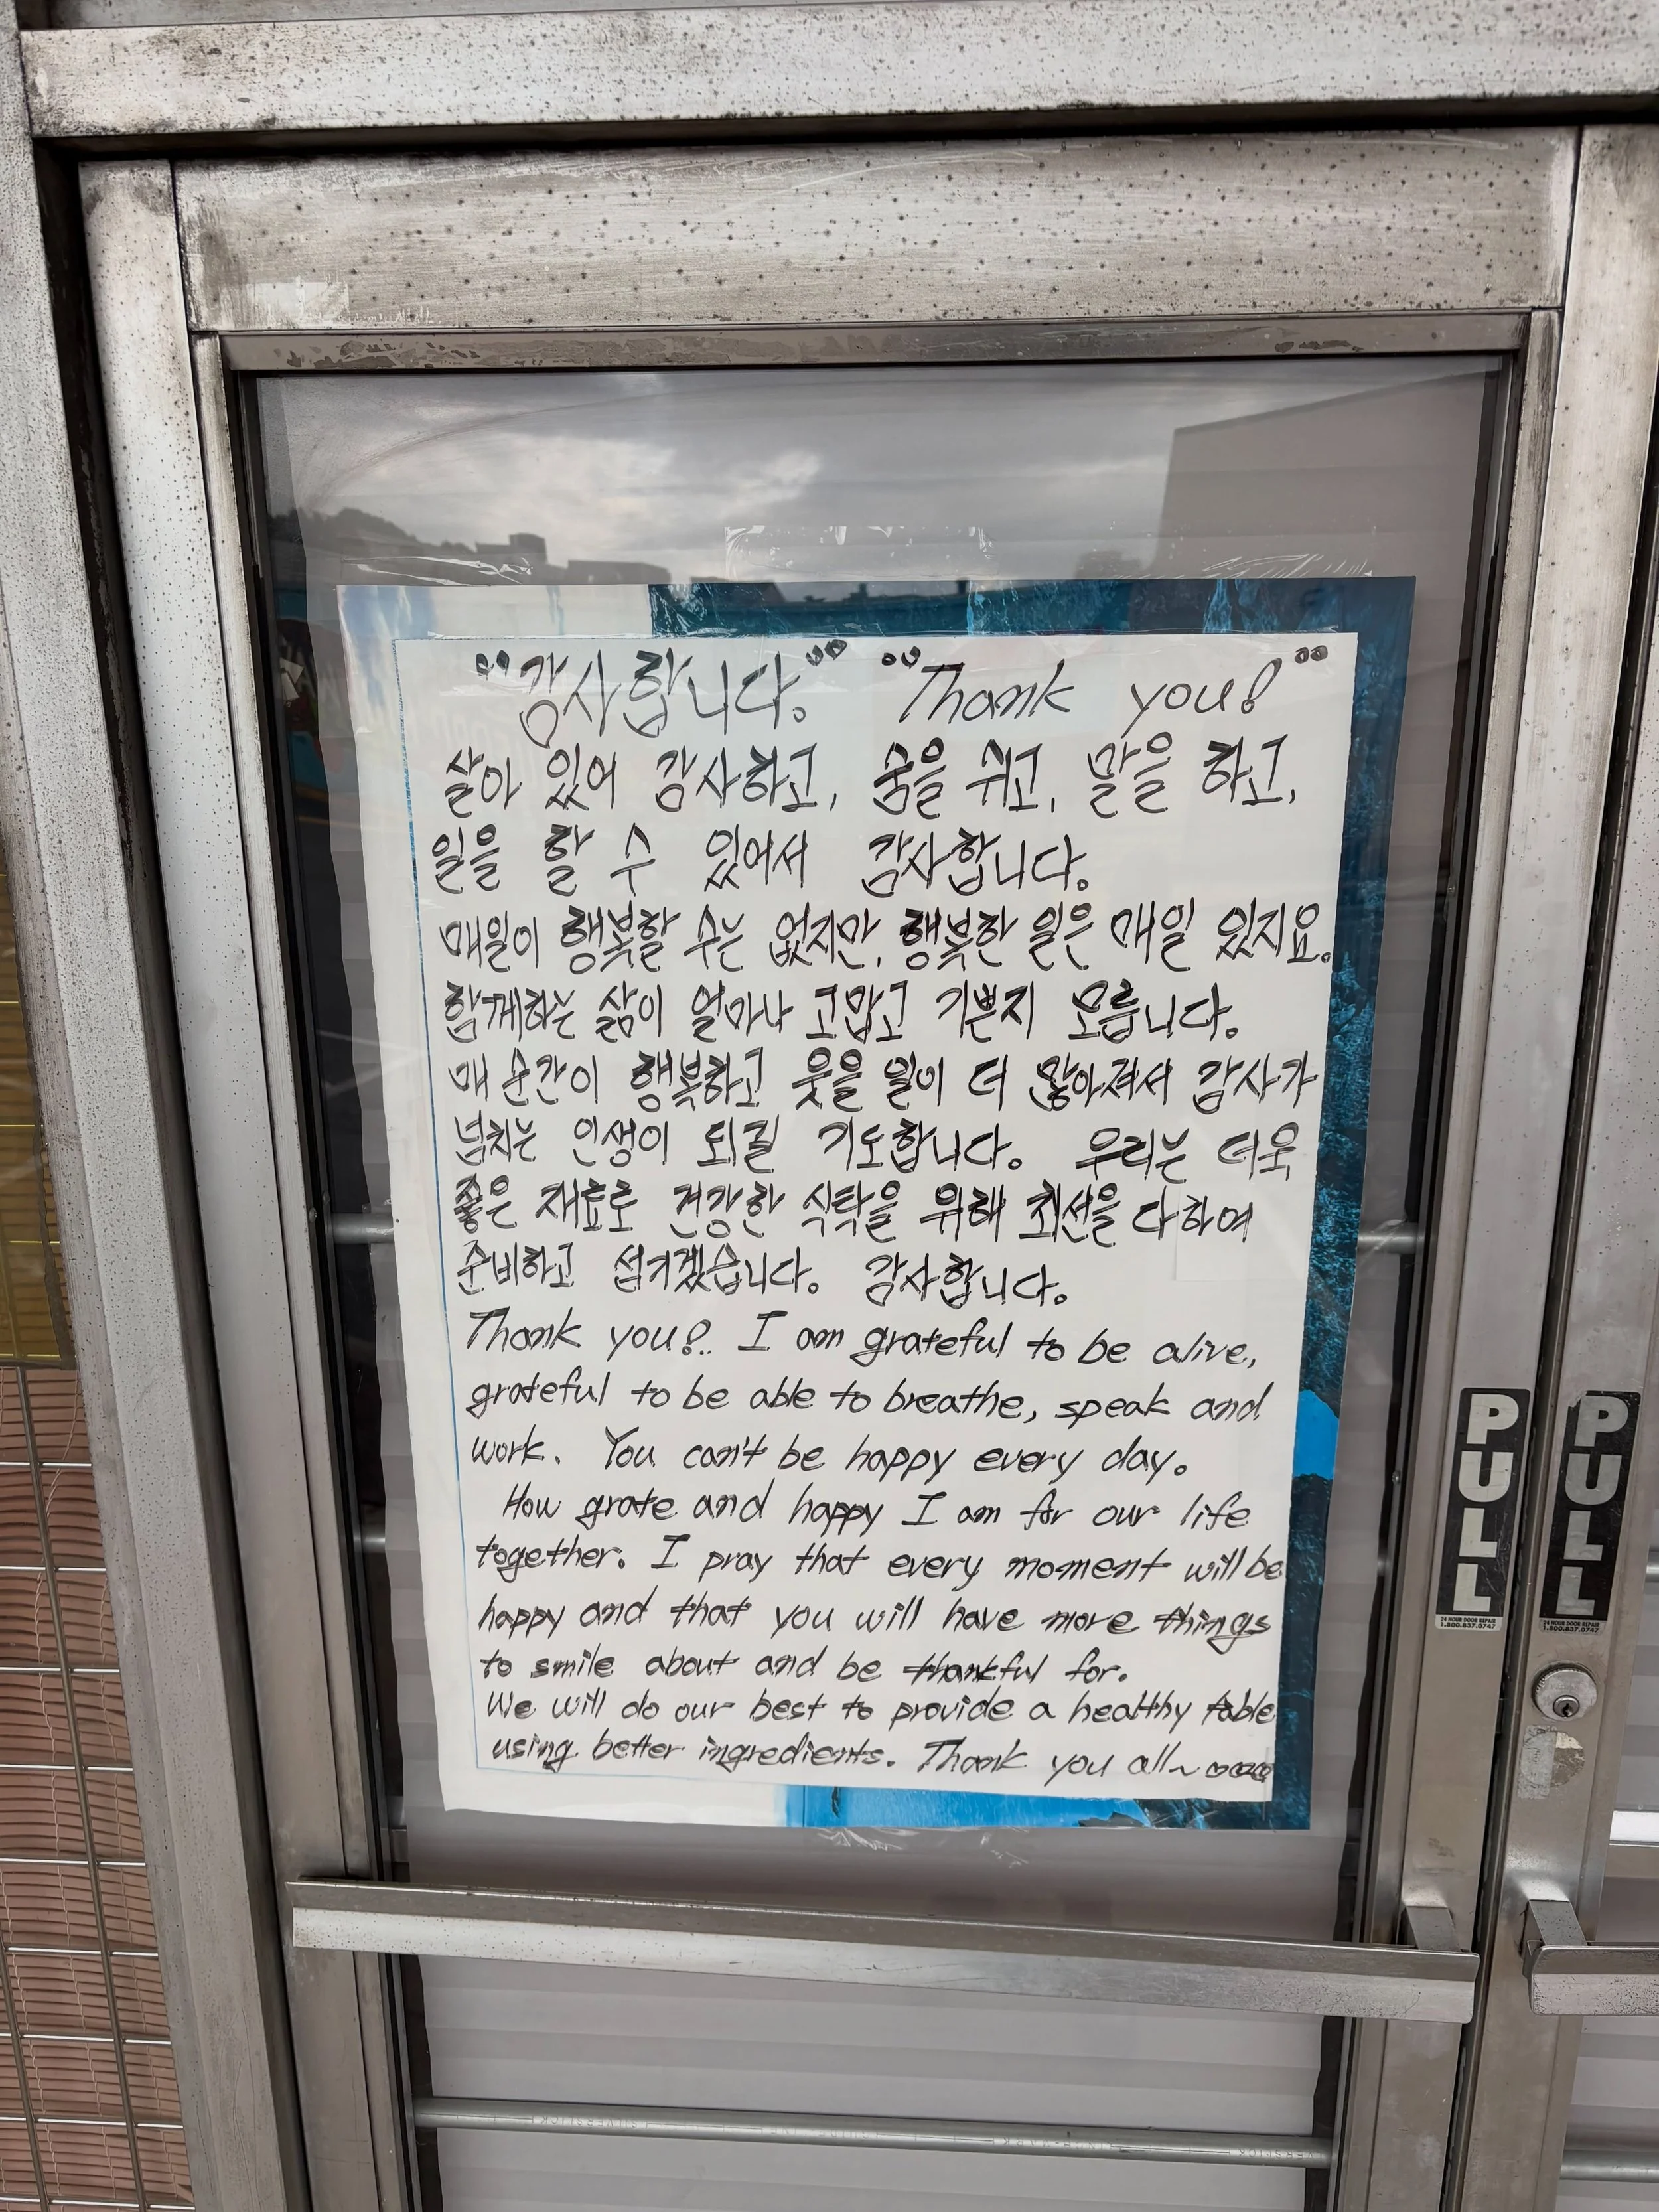 "감사합니다." "Thank you!"
살아 있어 감사하고, 숨을 쉬고, 말을 하고,
일을 할 수 있어서 감사합니다.
매일이 행복할 수는 없지만, 행복한 일은 매일 있지요.
함께하는 삶이 얼마나 고맙고 기쁜지 모릅니다.
매 순간이 행복하고 웃을 일이 더 많아져서 감사가
넘치는 인생이 되길 기도합니다. 우리는 더욱
좋은 재료로 건강한 식탁을 위해 최선을 다하여
준비하고 섬기겠습니다. 감사합니다.
Thank you!.. I am grateful to be alive,
grateful to be able to breathe, speak and
work. You can't be happy every day.
How grate and happy I am for our life
together. I pray that every moment will be
happy and that you will have more things
to smile about and be thankful for.
We will do our best to provide a healthy table
using better ingredients. Thank you all~ ♡♡♡♡
PULL
24 HOUR DOOR REPAIR
1.800.837.0747
PULL
24 HOUR DOOR REPAIR
1.800.837.0747